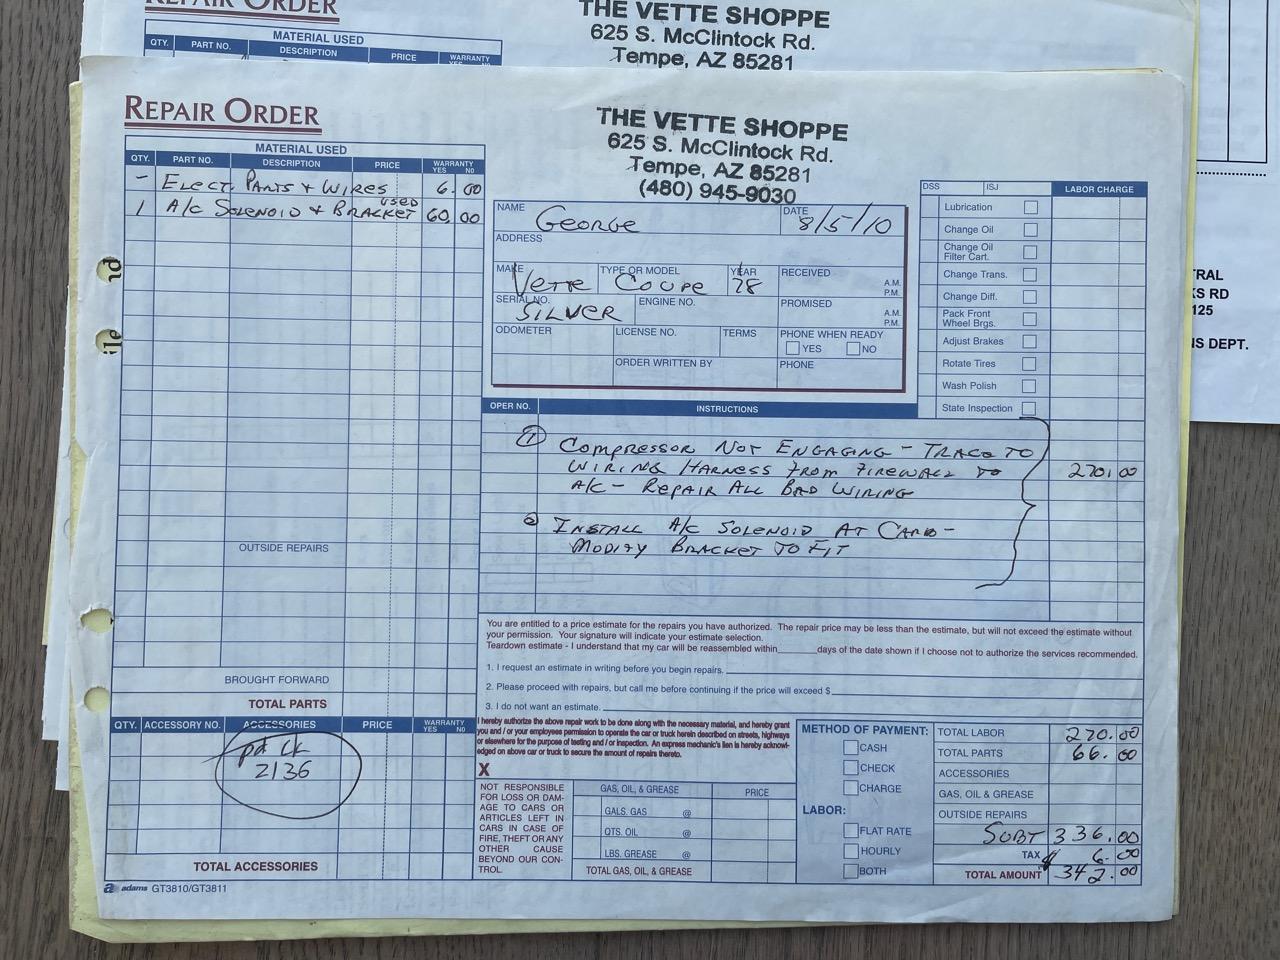 REPAIR ORDER
MATERIAL USED
QTY. PART NO. DESCRIPTION PRICE WARRANTY
YES NO
THE VETTE SHOPPE
625 S. McClintock Rd.
Tempe, AZ 85281
REPAIR ORDER
MATERIAL USED
QTY. PART NO. DESCRIPTION PRICE WARRANTY
YES NO
- ELECT. PARTS + WIRES 6.00
USED
1 A/C SOLENOID + BRACKET 60.00
OUTSIDE REPAIRS
BROUGHT FORWARD
TOTAL PARTS
QTY. ACCESSORY NO. ACCESSORIES PRICE WARRANTY
YES NO
pd ck
2136
TOTAL ACCESSORIES
adams GT3810/GT3811
THE VETTE SHOPPE
625 S. McClintock Rd.
Tempe, AZ 85281
(480) 945-9030
NAME George DATE 8/5/10
ADDRESS
MAKE Vette TYPE OR MODEL Coupe YEAR 78 RECEIVED A.M.
P.M.
SERIAL NO. SILVER ENGINE NO. PROMISED A.M.
P.M.
ODOMETER LICENSE NO. TERMS PHONE WHEN READY
YES NO
ORDER WRITTEN BY PHONE
DSS ISJ LABOR CHARGE
Lubrication
Change Oil
Change Oil
Filter Cart.
Change Trans.
Change Diff.
Pack Front
Wheel Brgs.
Adjust Brakes
Rotate Tires
Wash Polish
State Inspection
OPER NO. INSTRUCTIONS
1 COMPRESSOR NOT ENGAGING - TRACE TO
WIRING HARNESS FROM FIREWALL TO 270.00
A/C - REPAIR ALL BAD WIRING
2 INSTALL A/C SOLENOID AT CARB -
MODIFY BRACKET TO FIT
You are entitled to a price estimate for the repairs you have authorized. The repair price may be less than the estimate, but will not exceed the estimate without
your permission. Your signature will indicate your estimate selection.
Teardown estimate - I understand that my car will be reassembled within______days of the date shown if I choose not to authorize the services recommended.
1. I request an estimate in writing before you begin repairs.
2. Please proceed with repairs, but call me before continuing if the price will exceed $
3. I do not want an estimate.
I hereby authorize the above repair work to be done along with the necessary material, and hereby grant
you and / or your employees permission to operate the car or truck herein described on streets, highways
or elsewhere for the purpose of testing and / or inspection. An express mechanic's lien is hereby acknowl-
edged on above car or truck to secure the amount of repairs thereto.
X
NOT RESPONSIBLE
FOR LOSS OR DAM-
AGE TO CARS OR
ARTICLES LEFT IN
CARS IN CASE OF
FIRE, THEFT OR ANY
OTHER CAUSE
BEYOND OUR CON-
TROL.
GAS, OIL, & GREASE PRICE
GALS. GAS @
QTS. OIL @
LBS. GREASE @
TOTAL GAS, OIL, & GREASE
METHOD OF PAYMENT:
CASH
CHECK
CHARGE
LABOR:
FLAT RATE
HOURLY
BOTH
TOTAL LABOR 270.00
TOTAL PARTS 66.00
ACCESSORIES
GAS, OIL & GREASE
OUTSIDE REPAIRS
SUBT 336.00
TAX 6.00
TOTAL AMOUNT $ 342.00
TRAL
KS RD
125
NS DEPT.